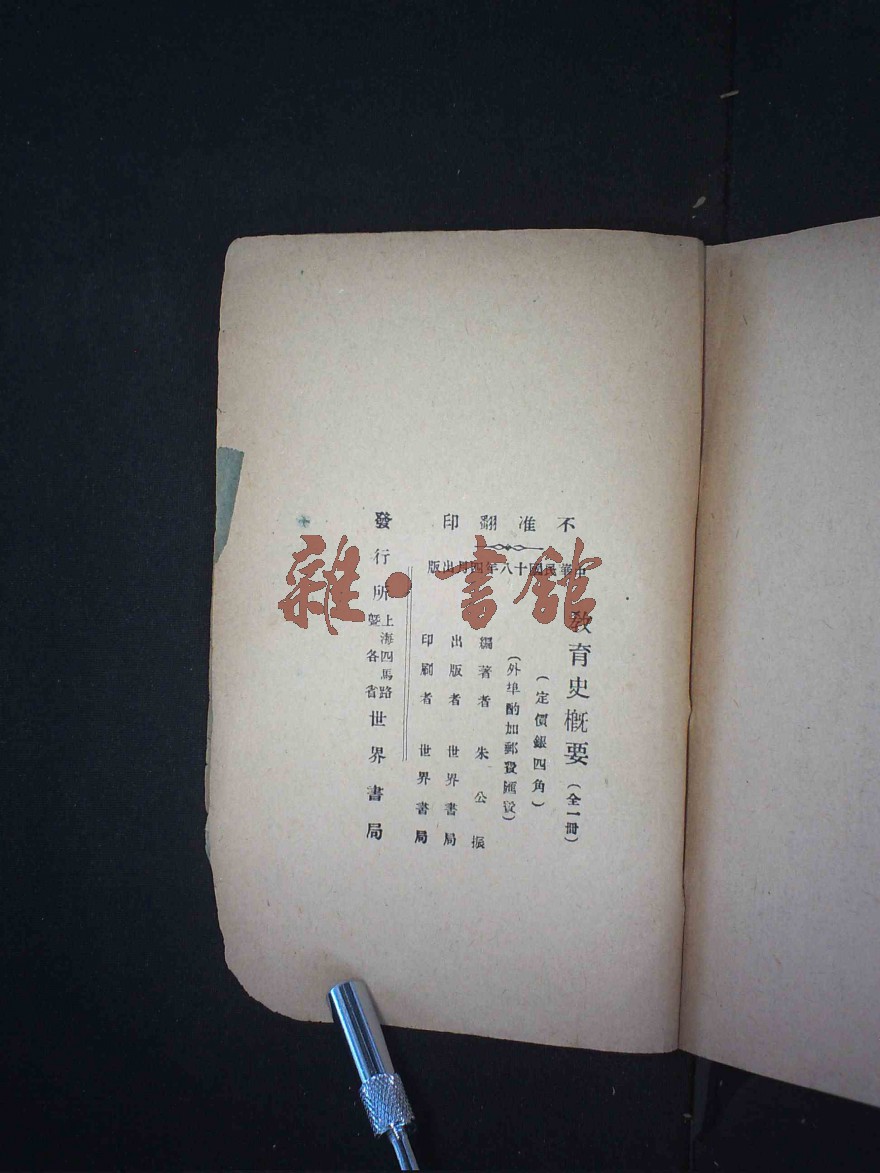 不准翻印
中華民國十八年四月出版
教育史概要（全一冊）
（定價銀四角）
（外埠酌加郵費匯費）
編著者 朱公振
出版者 世界書局
印刷者 世界書局
發行所 上海四馬路暨各省 世界書局
雜·書館